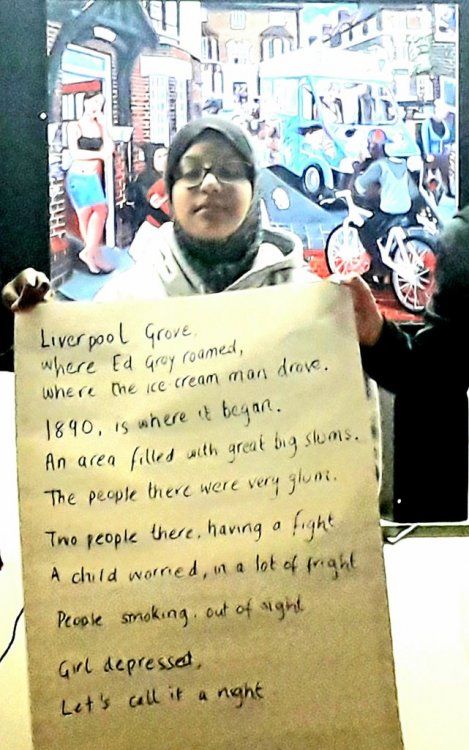 Liverpool Grove.
where Ed Gray roamed,
where the ice cream man drove.
1890, is where it began.
An area filled with great big slums.
The people there were very glum.
Two people there, having a fight
A child worried, in a lot of fright
People smoking, out of sight
Girl depressed,
Let's call it a night.